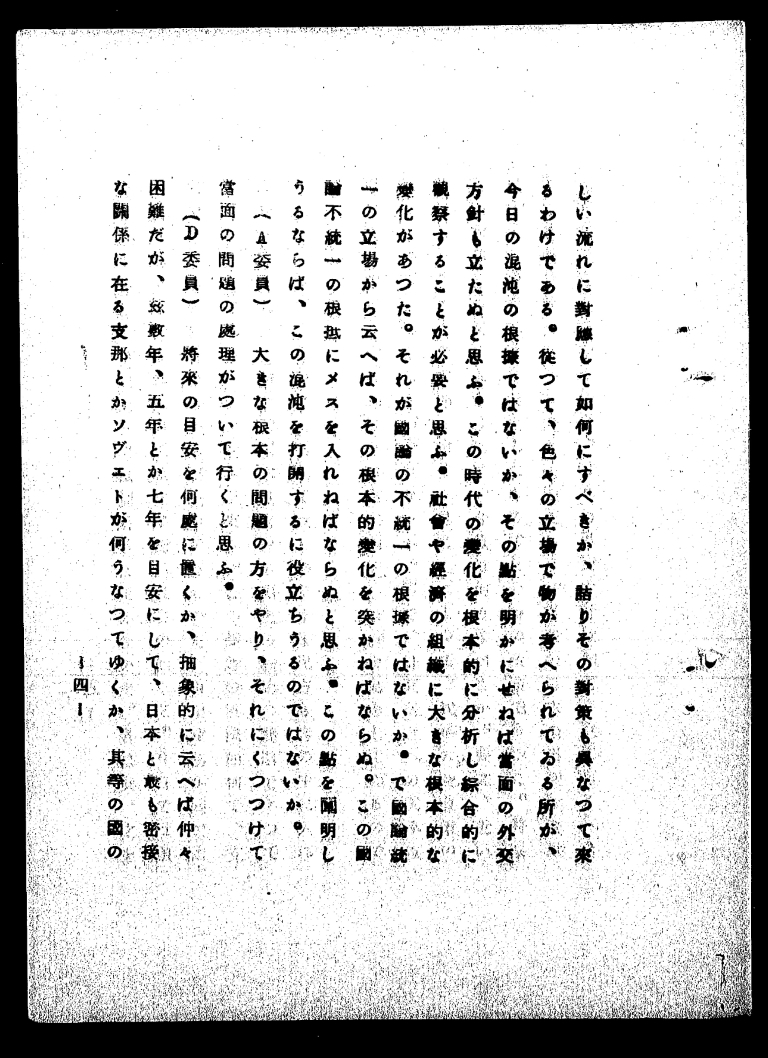 しい流れに對應して如何にすべきか、詰りその對策も異なつて來
るわけである。從つて、色々の立場で物が考へられてゐる所が、
今日の混沌の根據ではないか、その點を明かにせねば當面の外交
方針も立たぬと思ふ。この時代の變化を根本的に分析し綜合的に
觀察することが必要と思ふ。社會や經濟の組織に大きな根本的な
變化があつた。それが國論の不統一の根據ではないか。で國論統
一の立場から云へば、その根本的變化を突かねばならぬ。この國
論不統一の根抵にメスを入れねばならぬと思ふ。この點を闡明し
うるならば、この混沌を打開するに役立ちうるのではないか。
(A委員) 大きな根本の問題の方をやり、それにくつつけて
當面の問題の處理がついて行くと思ふ。
(D委員) 將來の目安を何處に置くか、抽象的に云へば仲々
困難だが、玆數年、五年とか七年を目安にして、日本と最も密接
な關係に在る支那とかソヴエトが何うなつてゆくか、其等の國の
ー四ー